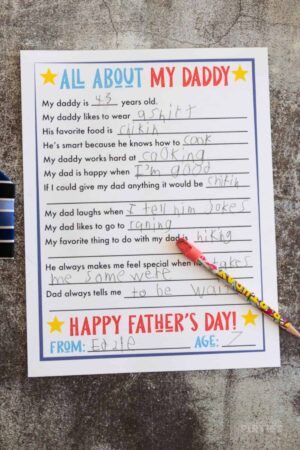 ALL ABOUT MY DADDY
My daddy is 45 years old.
My daddy likes to wear a shirt
His favorite food is chikin
He's smart because he knows how to cook
My daddy works hard at cooking
My dad is happy when I'm good
If I could give my dad anything it would be chikin
My dad laughs when I tell him Jokes
My dad likes to go to
My favorite thing to do with my dad is hiking
He always makes me feel special when he takes
me some were
Dad always tells me to be
HAPPY FATHER'S DAY!
FROM: Eddie AGE: 7